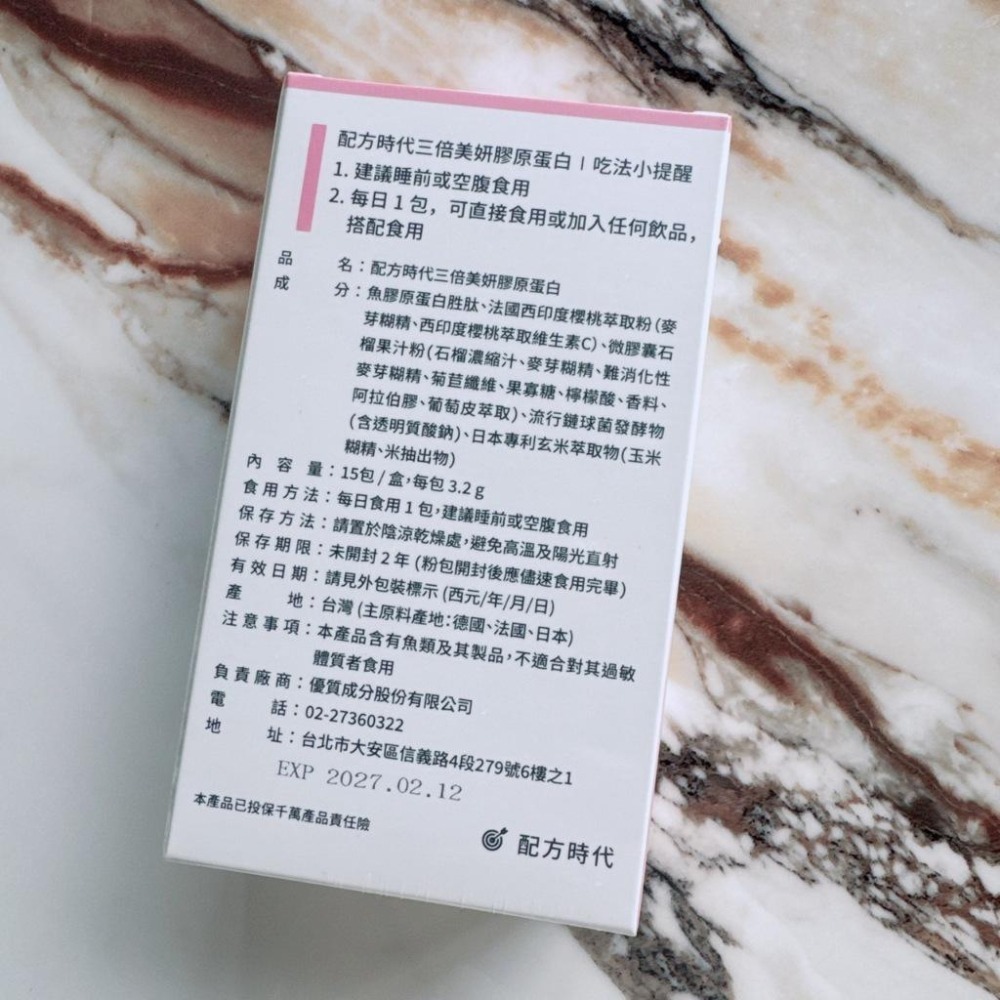 配方時代三倍美妍膠原蛋白 | 吃法小提醒
1. 建議睡前或空腹食用
2. 每日1包，可直接食用或加入任何飲品，
搭配食用
品名：配方時代三倍美妍膠原蛋白
成分：魚膠原蛋白胜肽、法國西印度櫻桃萃取粉(麥
芽糊精、西印度櫻桃萃取維生素C)、微膠囊石
榴果汁粉(石榴濃縮汁、麥芽糊精、難消化性
麥芽糊精、菊苣纖維、果寡糖、檸檬酸、香料、
阿拉伯膠、葡萄皮萃取)、流行鏈球菌發酵物
(含透明質酸鈉)、日本專利玄米萃取物(玉米
糊精、米抽出物)
內容量：15包/盒，每包3.2g
食用方法：每日食用1包，建議睡前或空腹食用
保存方法：請置於陰涼乾燥處，避免高溫及陽光直射
保存期限：未開封2年(粉包開封後應儘速食用完畢)
有效日期：請見外包裝標示(西元/年/月/日)
產地：台灣(主原料產地：德國、法國、日本)
注意事項：本產品含有魚類及其製品，不適合對其過敏
體質者食用
負責廠商：優質成分股份有限公司
電話：02-27360322
地址：台北市大安區信義路4段279號6樓之1
EXP 2027.02.12
本產品已投保千萬產品責任險
配方時代